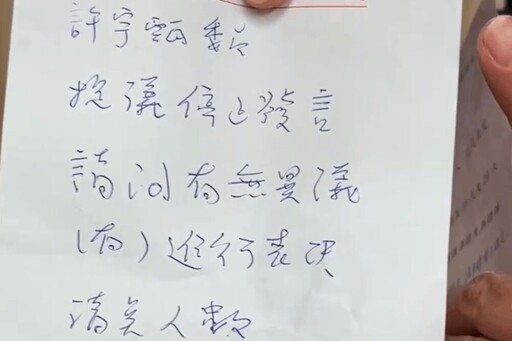 許宇甄委員
提議停止發言
請問有無異議
(有)進行表決
清點人數